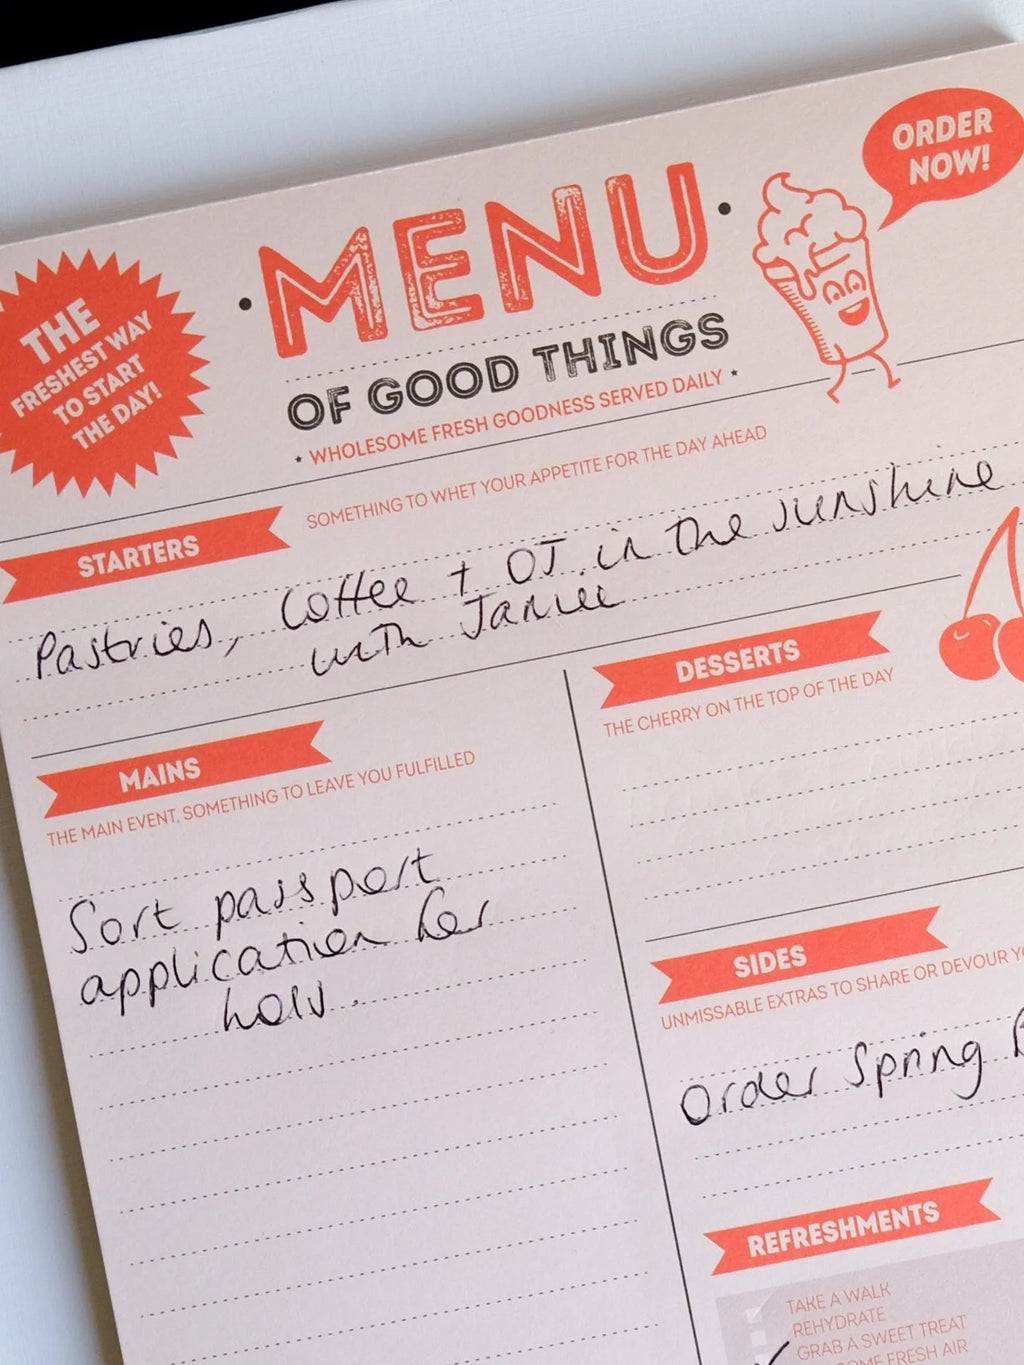 ORDER
NOW!
MENU
THE
FRESHEST WAY
TO START
THE DAY!
OF GOOD THINGS
WHOLESOME FRESH GOODNESS SERVED DAILY
STARTERS
SOMETHING TO WHET YOUR APPETITE FOR THE DAY AHEAD
Pastries, Coffee + OJ in the sunshine
with Janiee
MAINS
THE MAIN EVENT, SOMETHING TO LEAVE YOU FULFILLED
Sort passport
application for
hols.
DESSERTS
THE CHERRY ON THE TOP OF THE DAY
SIDES
UNMISSABLE EXTRAS TO SHARE OR DEVOUR
Order Spring
REFRESHMENTS
TAKE A WALK
REHYDRATE
GRAB A SWEET TREAT
FRESH AIR